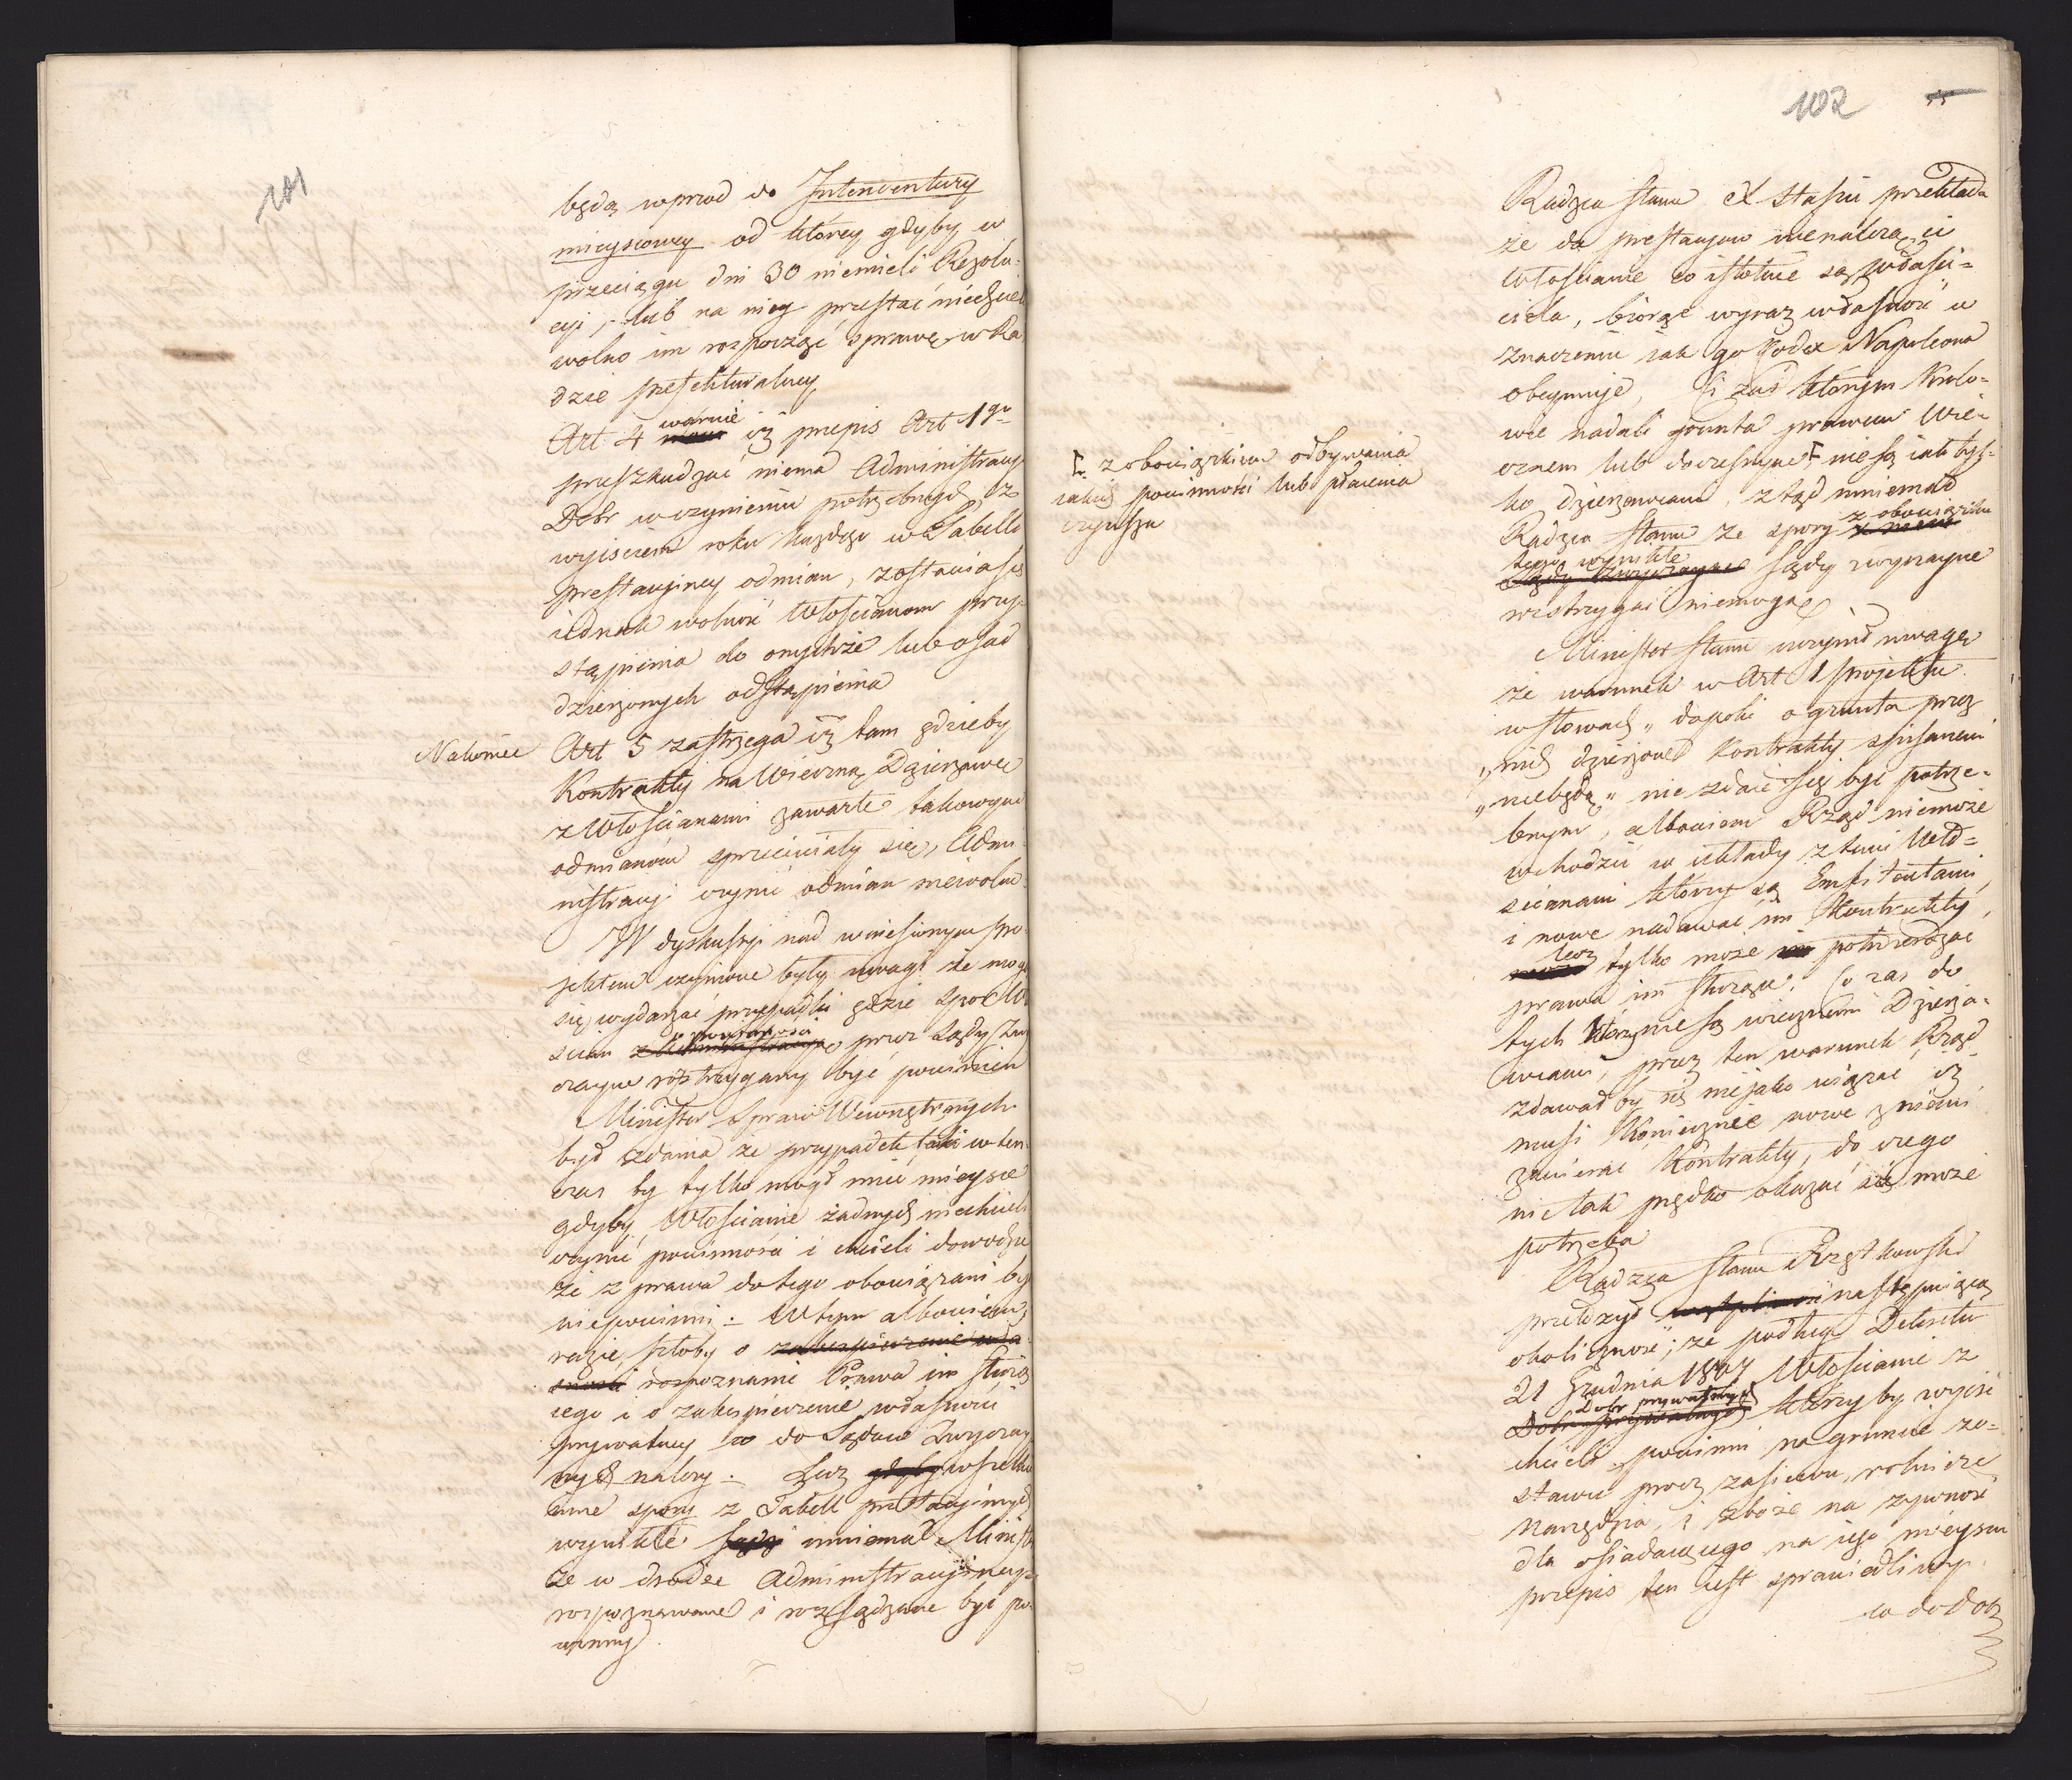 101
będą wprzod do Intendentury
mieyscowey od którey gdyby w
przeciągu dni 30 niemieli Rezolu-
cyi, lub na niey przestać niechcieli
wolno im rozpocząć sprawę w Ra
dzie prefekturalney
Art 4 warnie iż przepis Art 1go
przeszkadzać niema Administracyi
Dobr w czynieniu potrzebnych, z
wyjściem roku każdego w Tabelli
prestacyiney odmian, zostawia się
iednak wolność Włościanom przy-
stąpienia do onychże lub osad
dzierżonych odstąpienia
Nakoniec Art 5 zastrzega iż tam gdzieby
Kontrakty na Wieczną Dzierżawę
z Włościanami zawarte takowym
odmianom sprzeciwiały się, Admi-
nistracyi czynić odmian niewolno.
W dyskussyi nad wniesionym pro-
jektem czynione były uwagi że mogą
się wydarzać przypadki gdzie spor Wło
ścian z Administracyą o powinności przez Sądy Zwy
czayne rozstrzygany być powinien
Minister Spraw Wewnętrznych
był zdania że przypadek taki w ten
czas by tylko mógł mieć mieysce
gdyby Włościanie żadnych niechcieli
czynić powinności i chcieli dowodzić
że z prawa do tego obowiązani być
niepowinni. W tym albowiem
razie, szłoby o zabezpieczenie wła
sności rozpoznanie Prawa im służą
cego i o zabezpieczenie własności
prywatney co do Sądów Zwyczay
nych należy. Lecz gdyby wszelkie
inne spory z Tabell prestacyinych
wynikłe sądzi mniemał Minister
że w drodze Administracyiney
rozpoznawane i rozsądzane być po
winny.
102
Radzca Stanu Staszic przekłada
że da prestacyow nienależą ci
Włościanie co istotnie są właści-
ciela, biorąc wyraz własność w
znaczeniu iak go Kodex Napoleona
obeymuje, Ci zaś którym Krolo-
wie nadali grunta prawem Wie-
cznem lub doczesnym Ⱶ nie są iak tyl-
ko dzierżawcami, ztąd mniemał
Radzca Stanu że spory z niemi z obowiązku
tego wynikłe sądy zwyczayne sądy zwyczayne
rozstrzygać niemogą
Ⱶ z obowiązkiem odbywania
iakiey powinności lub płacenia
czynszu
Minister Stanu czynił uwagę
że warunek w Art 1 projektu
w słowach „dopoki o grunta przez
„nich dzierżone Kontrakty spisanemi
„niebędą" nie zdaie się być potrze-
bnym, albowiem Rząd niemoże
wchodzić w układy z temi Wło-
ścianami którzy są Emfiteutami,
i nowe nadawać im Kontrakty,
lecz tylko może im potwierdzać
prawa im służące. Co zaś do
tych którzy nie są wiecznemi Dzierża-
wcami, przez ten warunek Rząd
zdawał by się niejako wiązać iż
musi Koniecznie nowe z niemi
zawierać Kontrakty, do czego
nie tak prędko okazać się może
potrzeba
Radzca Stanu Rzętkowski
przełożył wątpliwość następuiącą
okoliczność; że podług Dekretu
21 Grudnia 1807 Włościanie z
Dobr prywatnych Dobr prywatnych którzy by wyiść
chcieli powinni na gruncie zo-
stawić procz zasiewu, rolnicze
narzędzia, i zboże na żywność
dla osiadaiącego na iego mieyscu
przepis ten iest sprawiedliwy
co do dobr